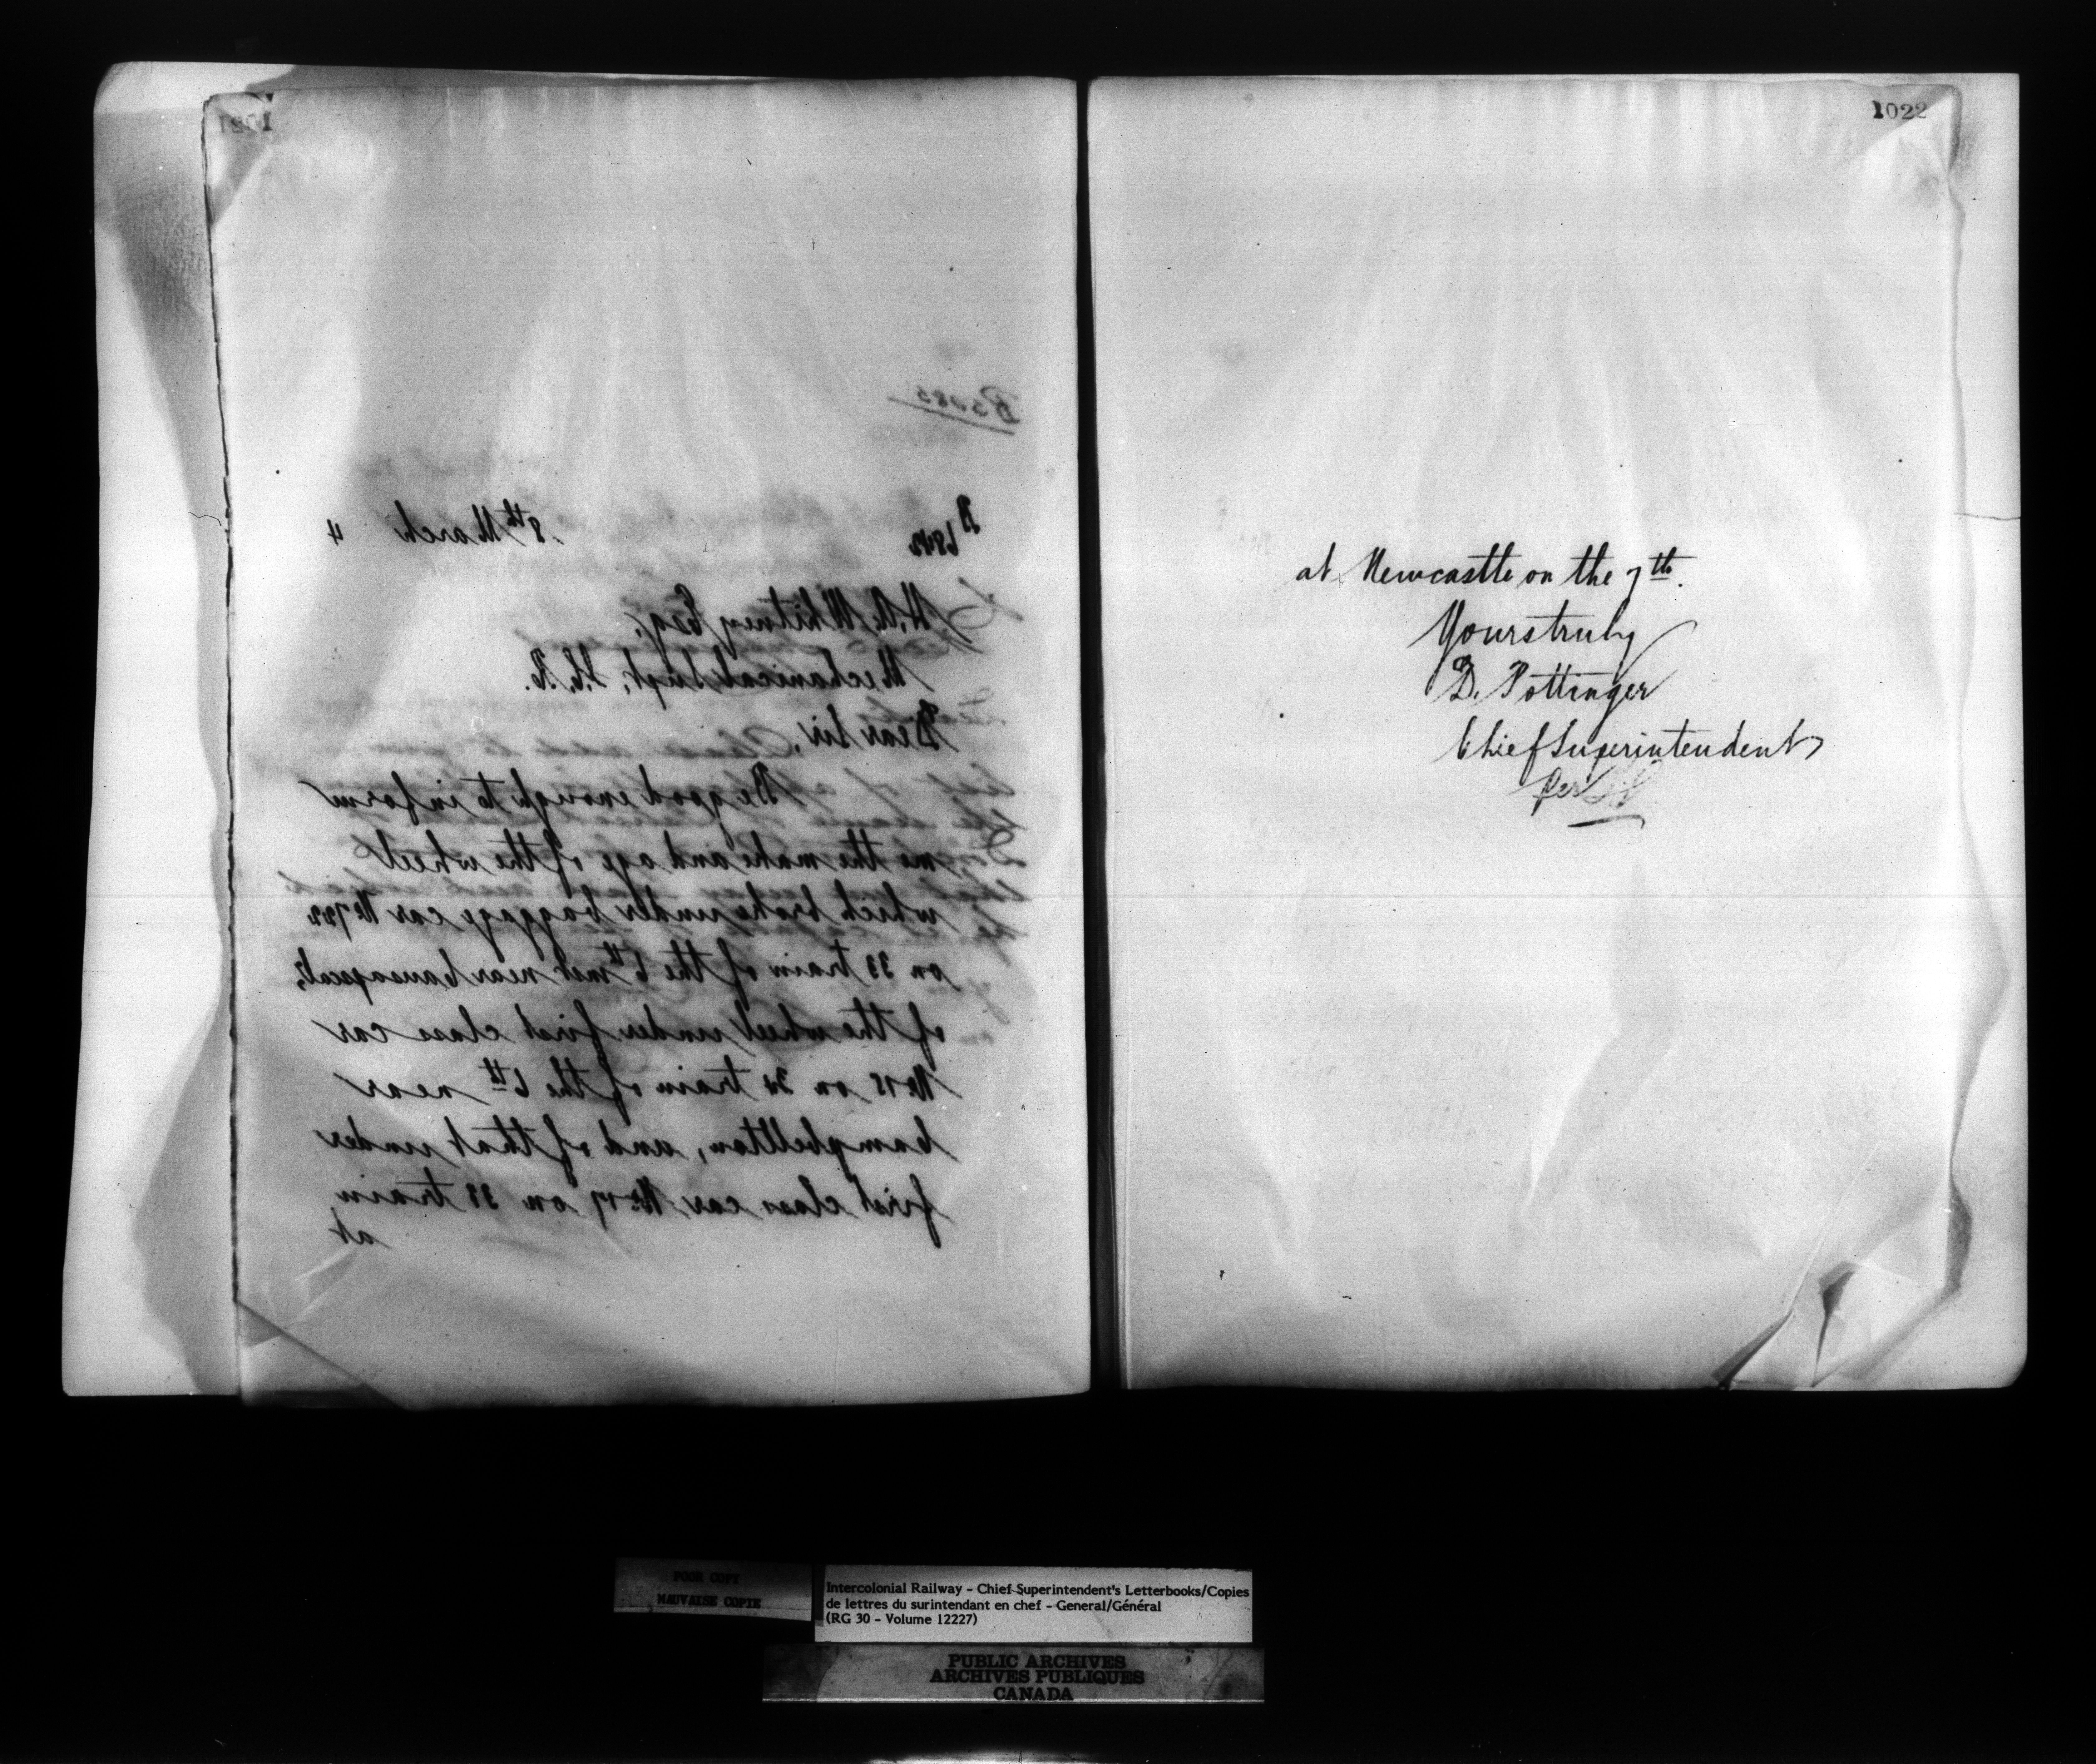 1021
B5085
B 6842
8th March 4
H.A. Whitney Esq.
Mechanical Supt. I.C.R.
Dear Sir,
Be good enough to inform
me the make and age of the wheel
which broke under baggage car No 722
on 33 train of the 6th inst near Causapscal,
of the wheel under first class car
No 15 on 34 train of the 6th near
Campbellton, and of that under
first class car No 17 on 33 train
at
1022
at Newcastle on the 7th.
Yours truly
D. Pottinger
Chief Superintendent
Per
POOR COPY
MAUVAISE COPIE
Intercolonial Railway - Chief Superintendent's Letterbooks/Copies
de lettres du surintendant en chef - General/Général
(RG 30 - Volume 12227)
PUBLIC ARCHIVES
ARCHIVES PUBLIQUES
CANADA